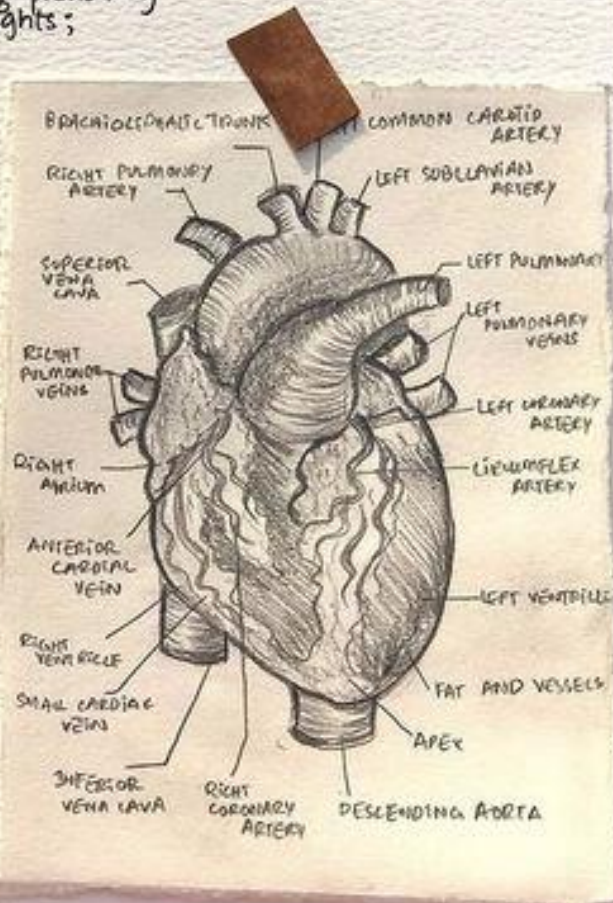 ghts;
BRACHIOCEPHALIC TRUNK
COMMON CAROTID
ARTERY
RIGHT PULMONARY
ARTERY
LEFT SUBCLAVIAN
ARTERY
SUPERIOR
VENA
CAVA
LEFT PULMONARY
LEFT
PULMONARY
VEINS
RIGHT
PULMONARY
VEINS
LEFT CORONARY
ARTERY
RIGHT
ATRIUM
CIRCUMFLEX
ARTERY
ANTERIOR
CARDIAL
VEIN
LEFT VENTRICLE
RIGHT
VENTRICLE
FAT AND VESSELS
SMALL CARDIAC
VEIN
APEX
INFERIOR
VENA CAVA
RIGHT
CORONARY
ARTERY
DESCENDING AORTA